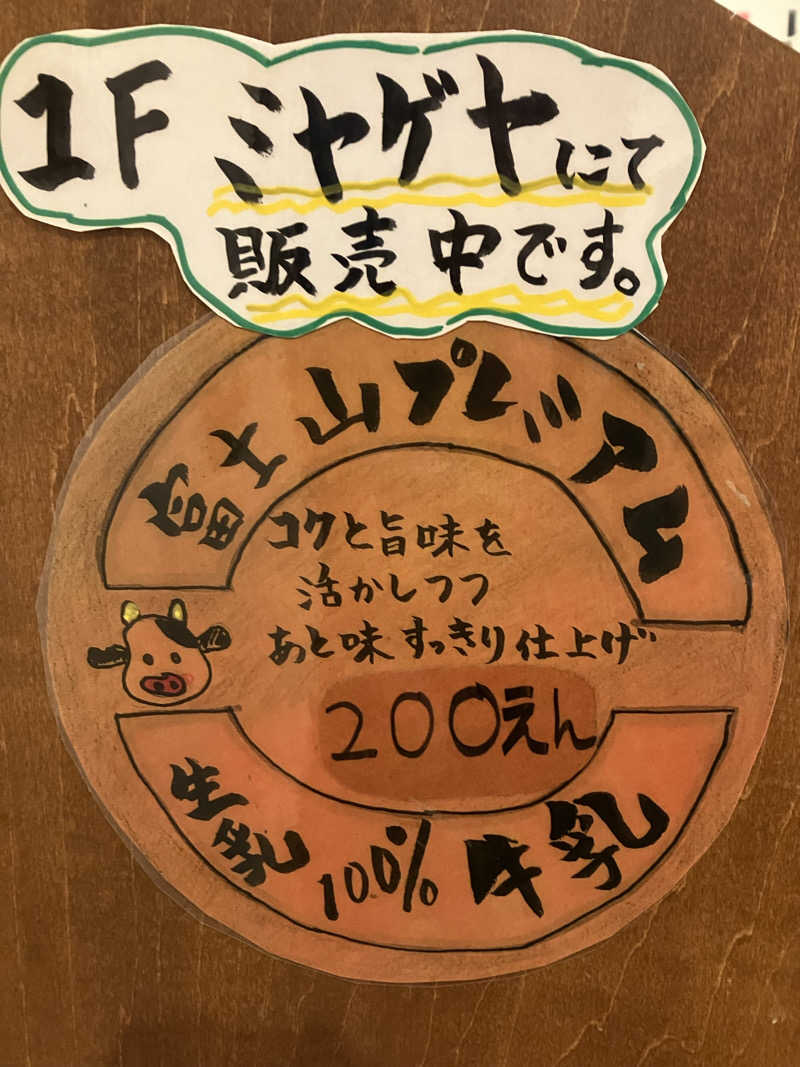 1F ミヤゲヤにて
販売中です。
富士山プレミアム
コクと旨味を
活かしつつ
あと味すっきり仕上げ
200えん
生乳100%牛乳